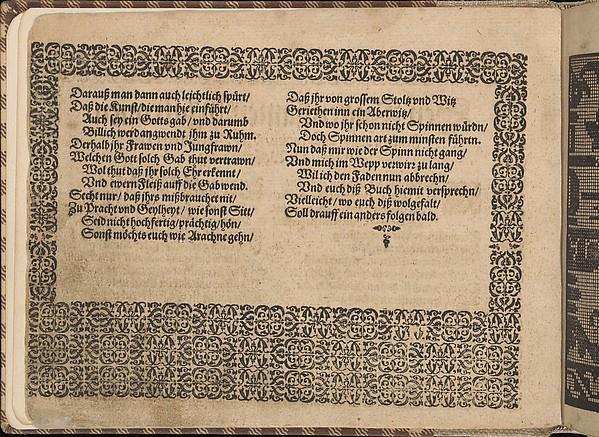 Darauß man dann auch leichtlich spürt/
Daß die Kunst/ die man hie einführt/
Auch sey ein Gotts gab/ und darumb
Billich werd angwendt jhm zu Ruhm.
Derhalb jhr Frawen vnd Jungfrawn/
Welchen Gott solch Gab thut vertrawn/
Wol thut daß jhr solch Ehr erkennt/
Vnd ewern Fleiß auff die Gab wend.
Secht nur/ daß jhrs mißbrauchet nit/
Zu Pracht vnd Geylheyt/ wie sonst Sitt/
Seid nicht hochfertig/ prächtig/ hön/
Sonst möchts euch wie Arachne gehn/
Daß jhr von grossem Stoltz vnd Witz
Geriethen inn ein Aberwitz/
Vnd wo jhr schon nicht Spinnen würdn/
Doch Spinnen art zum minsten führtn.
Nun daß mir wie der Spinn nicht gang/
Vnd mich im Wepp verwirr zu lang/
Wil ich den Faden nun abbrechn/
Vnd euch diß Buch hiemit versprechn/
Vielleicht/ wo euch diß wolgefalt/
Soll drauff ein anders folgen bald.